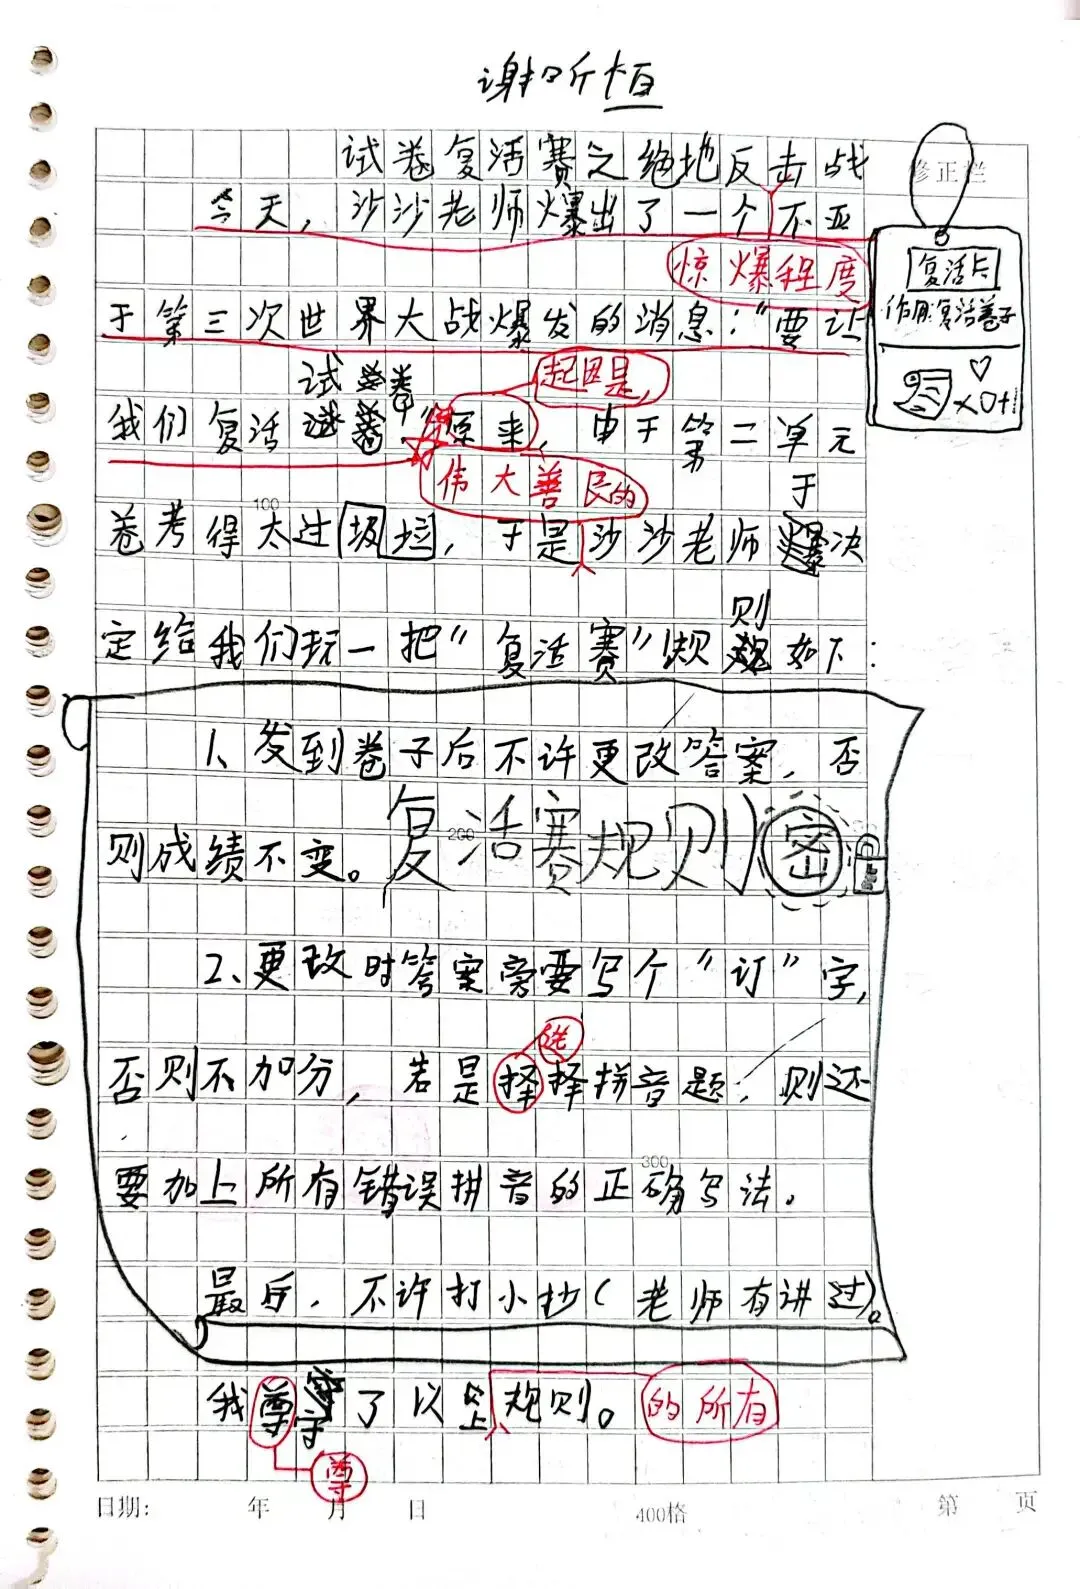 谢昕恒
试卷复活赛之绝地反击战
修正栏
今天，沙沙老师爆出了一个不亚
惊爆程度
复活卡
作用:复活卷子
×01
于第三次世界大战爆发的消息："要让
试卷
起因是，
我们复活 ，"原来，由于第二单元
伟大善良的
于
100
卷考得太过圾垃，于是沙沙老师 决
则
定给我们玩一把"复活赛"规 如下:
1、发到卷子后不许更改答案，否
200
则成绩不变。复活赛规则 密
2、更改时答案旁要写个"订"字，
选
否则不加分，若是择择拼音题，则还
300
要加上所有错误拼音的正确写法。
最后，不许打小抄(老师有讲过)。
我尊守了以上规则。的所有
日期: 年 月 日 400格 第 页